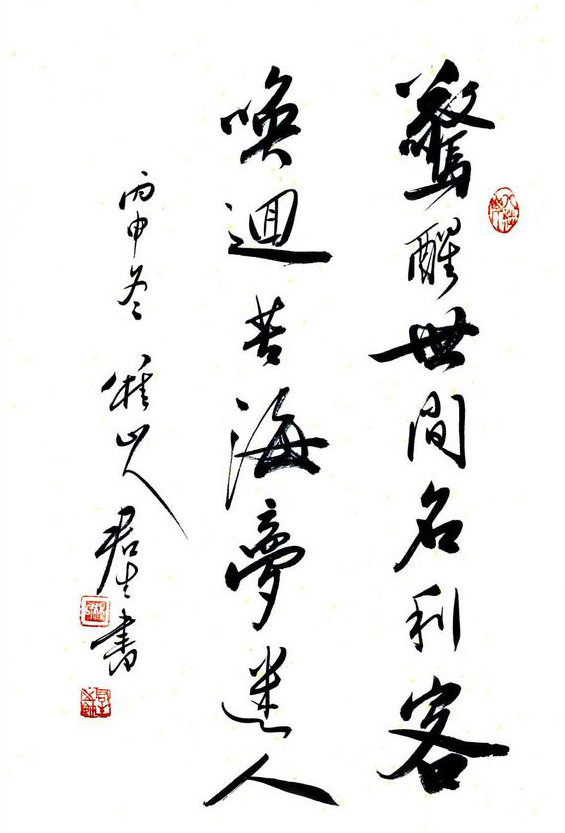 驚醒世間名利客
喚迴苦海夢迷人
丙申冬 山人君生書